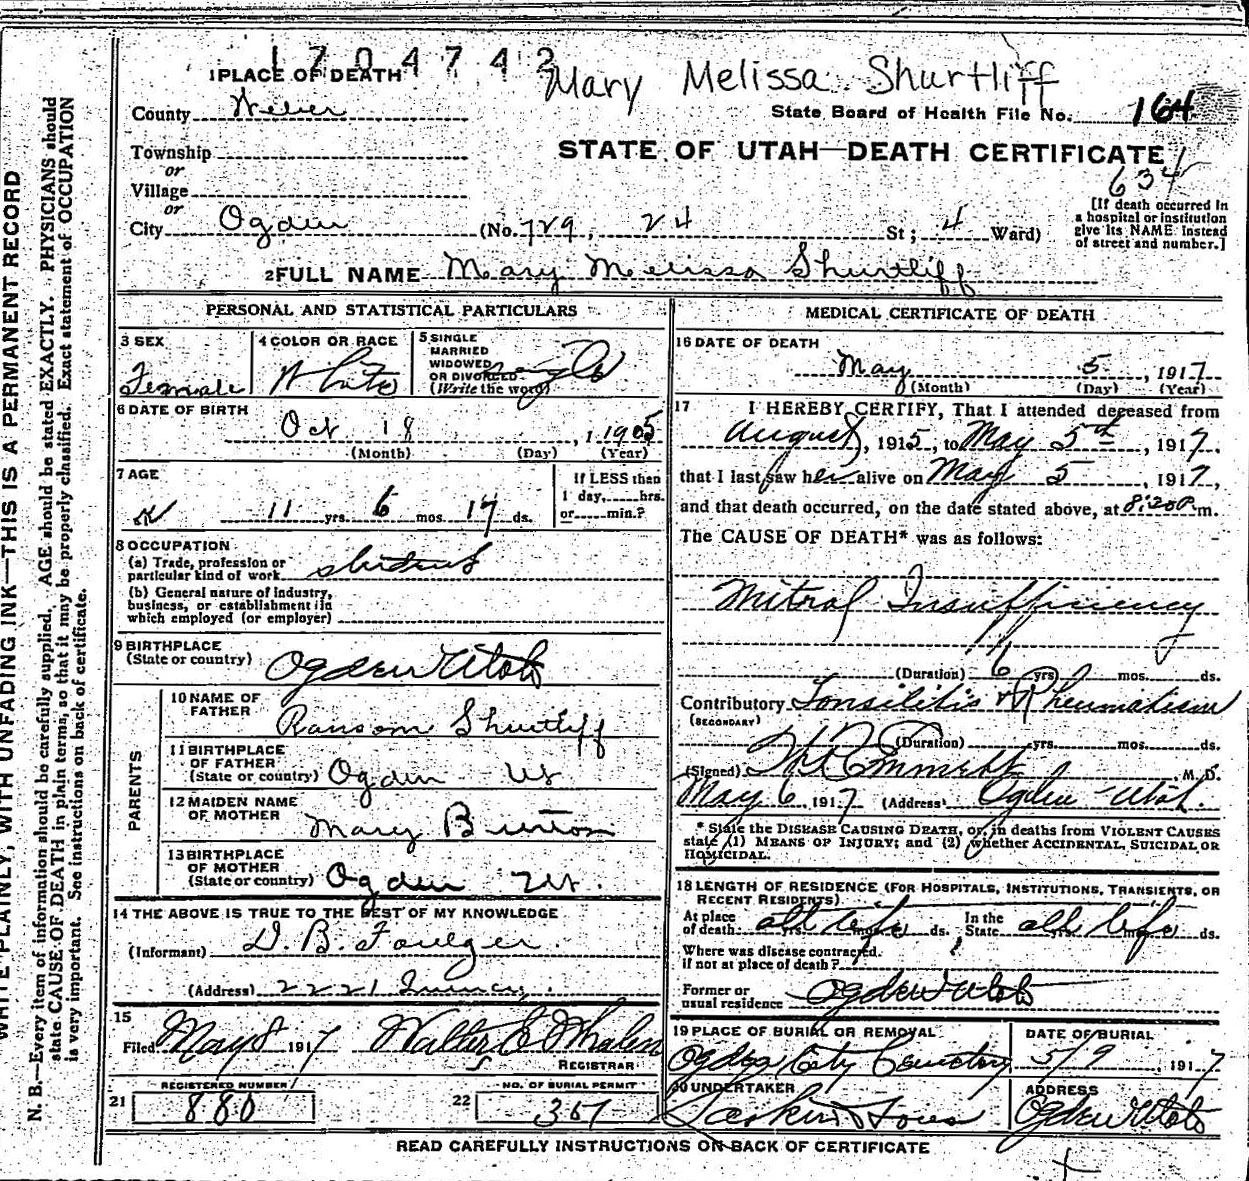 1704742
Mary Melissa Shurtliff
1 PLACE OF DEATH
County Weber
State Board of Health File No. 164
Township
or
Village
or
City Ogden (No. 729, 24 St; 4 Ward)
STATE OF UTAH—DEATH CERTIFICATE
634
[If death occurred in
a hospital or institution
give its NAME instead
of street and number.]
2 FULL NAME Mary Melissa Shurtliff
PERSONAL AND STATISTICAL PARTICULARS
3 SEX
Female
4 COLOR OR RACE
White
5 SINGLE
MARRIED
WIDOWED
OR DIVORCED
(Write the word)
single
6 DATE OF BIRTH
Oct 18, 1905
(Month) (Day) (Year)
7 AGE
11 yrs. 6 mos. 17 ds.
If LESS than
1 day, hrs.
or min.?
8 OCCUPATION
(a) Trade, profession or
particular kind of work student
(b) General nature of industry,
business, or establishment in
which employed (or employer)
9 BIRTHPLACE
(State or country) Ogden Utah
PARENTS
10 NAME OF
FATHER Ransom Shurtliff
11 BIRTHPLACE
OF FATHER
(State or country) Ogden Ut
12 MAIDEN NAME
OF MOTHER Mary Burton
13 BIRTHPLACE
OF MOTHER
(State or country) Ogden Ut.
14 THE ABOVE IS TRUE TO THE BEST OF MY KNOWLEDGE
(Informant) D. B. Foulger
(Address) 2221 Quincy.
15
Filed May 8 1917 Walter E Whalen
REGISTRAR
21 REGISTERED NUMBER
880
22 NO. OF BURIAL PERMIT
367
MEDICAL CERTIFICATE OF DEATH
16 DATE OF DEATH
May 5, 1917
(Month) (Day) (Year)
17 I HEREBY CERTIFY, That I attended deceased from
August, 1915, to May 5th, 1917.
that I last saw her alive on May 5 1917,
and that death occurred, on the date stated above, at 8:20 P. m.
The CAUSE OF DEATH* was as follows:
Mitral Insufficiency
(Duration) 6 yrs. mos. ds.
Contributory Tonsilitis & Rheumatism
(SECONDARY)
(Duration) yrs. mos. ds.
(Signed) Emmett M. D.
May 6 1917 (Address) Ogden Utah.
* State the DISEASE CAUSING DEATH, or, in deaths from VIOLENT CAUSES
state (1) MEANS OF INJURY; and (2) whether ACCIDENTAL, SUICIDAL OR
HOMICIDAL.
18 LENGTH OF RESIDENCE (FOR HOSPITALS, INSTITUTIONS, TRANSIENTS, OR
RECENT RESIDENTS)
At place
of death all life yrs. mos. ds. In the
State all life yrs. ds.
Where was disease contracted.
if not at place of death?
Former or
usual residence Ogden Utah
19 PLACE OF BURIAL OR REMOVAL
Ogden City Cemetery
DATE OF BURIAL
5/9 1917
20 UNDERTAKER
Larkin & Sons
ADDRESS
Ogden Utah
READ CAREFULLY INSTRUCTIONS ON BACK OF CERTIFICATE
WRITE PLAINLY, WITH UNFADING INK—THIS IS A PERMANENT RECORD
N. B.—Every item of information should be carefully supplied. AGE should be stated EXACTLY. PHYSICIANS should
state CAUSE OF DEATH in plain terms, so that it may be properly classified. Exact statement of OCCUPATION
is very important. See instructions on back of certificate.